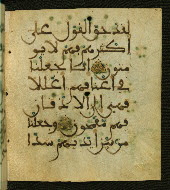 لقد حق القول على
أكثرهم فهم لا يو
منون إنا جعلنا
في أعناقهم أغللا
فهي إلى الأذقان
فهم مقمحون وجعلنا
من بين أيديهم سدا